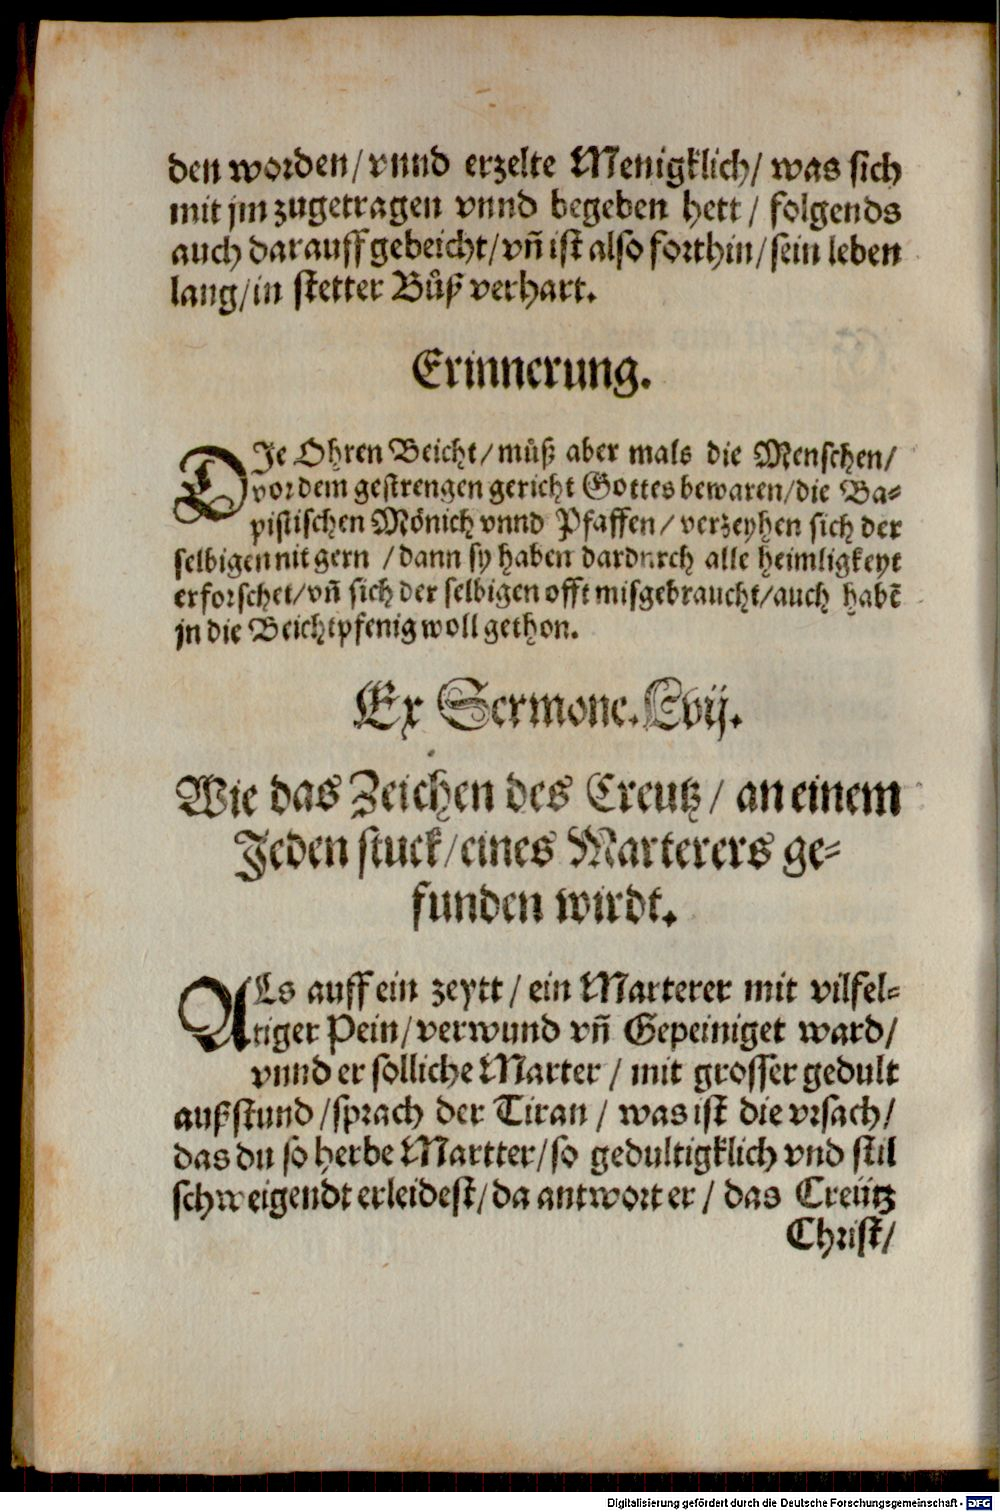 den worden/ vnnd erzelte Menigklich/ was sich
mit jm zugetragen vnnd begeben hett / folgends
auch darauff gebeicht/ vñ ist also forthin/ sein leben
lang/ in stetter Bůß verhart.
Erinnerung.
DJe Ohren Beicht/ můß aber mals die Menschen/
vor dem gestrengen gericht Gottes bewaren/ die Ba⸗
pistischen Mönich vnnd Pfaffen/ verzeyhen sich der
selbigen nit gern / dann sy haben dardurch alle heimligkeyt
erforschet/ vñ sich der selbigen offt misgebraucht/ auch habẽ
jn die Beichtpfenig woll gethon.
Ex Sermone. Lvij.
Wie das Zeichen des Creutz/ an einem
Jeden stuck/ eines Marterers ge⸗
funden wirdt.
ALs auff ein zeytt / ein Marterer mit vilfel⸗
tiger Pein/ verwund vñ Gepeiniget ward/
vnnd er solliche Marter / mit grosser gedult
außstund / sprach der Tiran / was ist die vrsach/
das du so herbe Martter/ so gedultigklich vnd stil
schweigendt erleidest/ da antwort er / das Creütz
Christ/
Digitalisierung gefördert durch die Deutsche Forschungsgemeinschaft - DFG